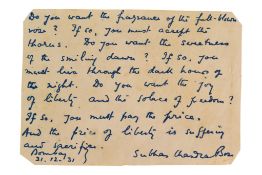 Do you want the fragrance of the full-blown
rose? If so, you must accept the
thorns. Do you want the sweetness
of the smiling dawn? If so, you
must live through the dark hours of
the night. Do you want the joy
of liberty and the solace of freedom?
If so, you must pay the price.
And the price of liberty is suffering
and sacrifice.
Bombay
31.12.31
Subhas Chandra Bose